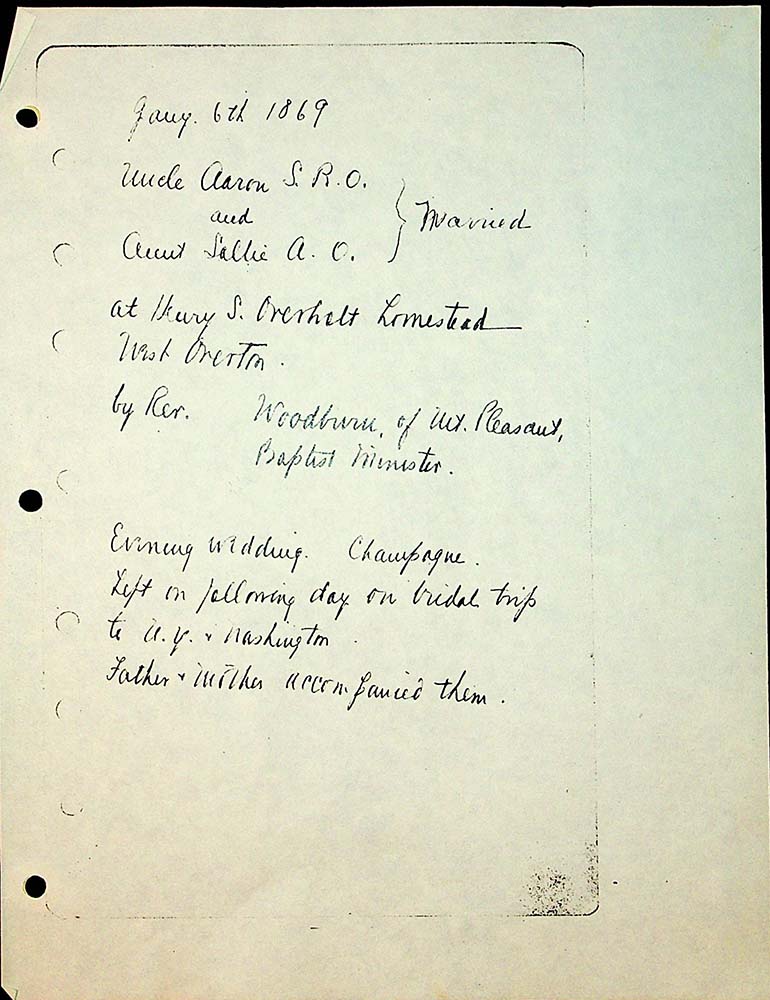 Jany. 6th 1869
Uncle Aaron S. R. O.
and
Married
Aunt Sallie A. O.
at Henry S. Overholt Homestead
West Overton.
by Rev. Woodburn, of Mt. Pleasant,
Baptist Minister.
Evening wedding. Champagne.
Left on following day on bridal trip
to N.Y. & Washington.
Father & Mother accompanied them.